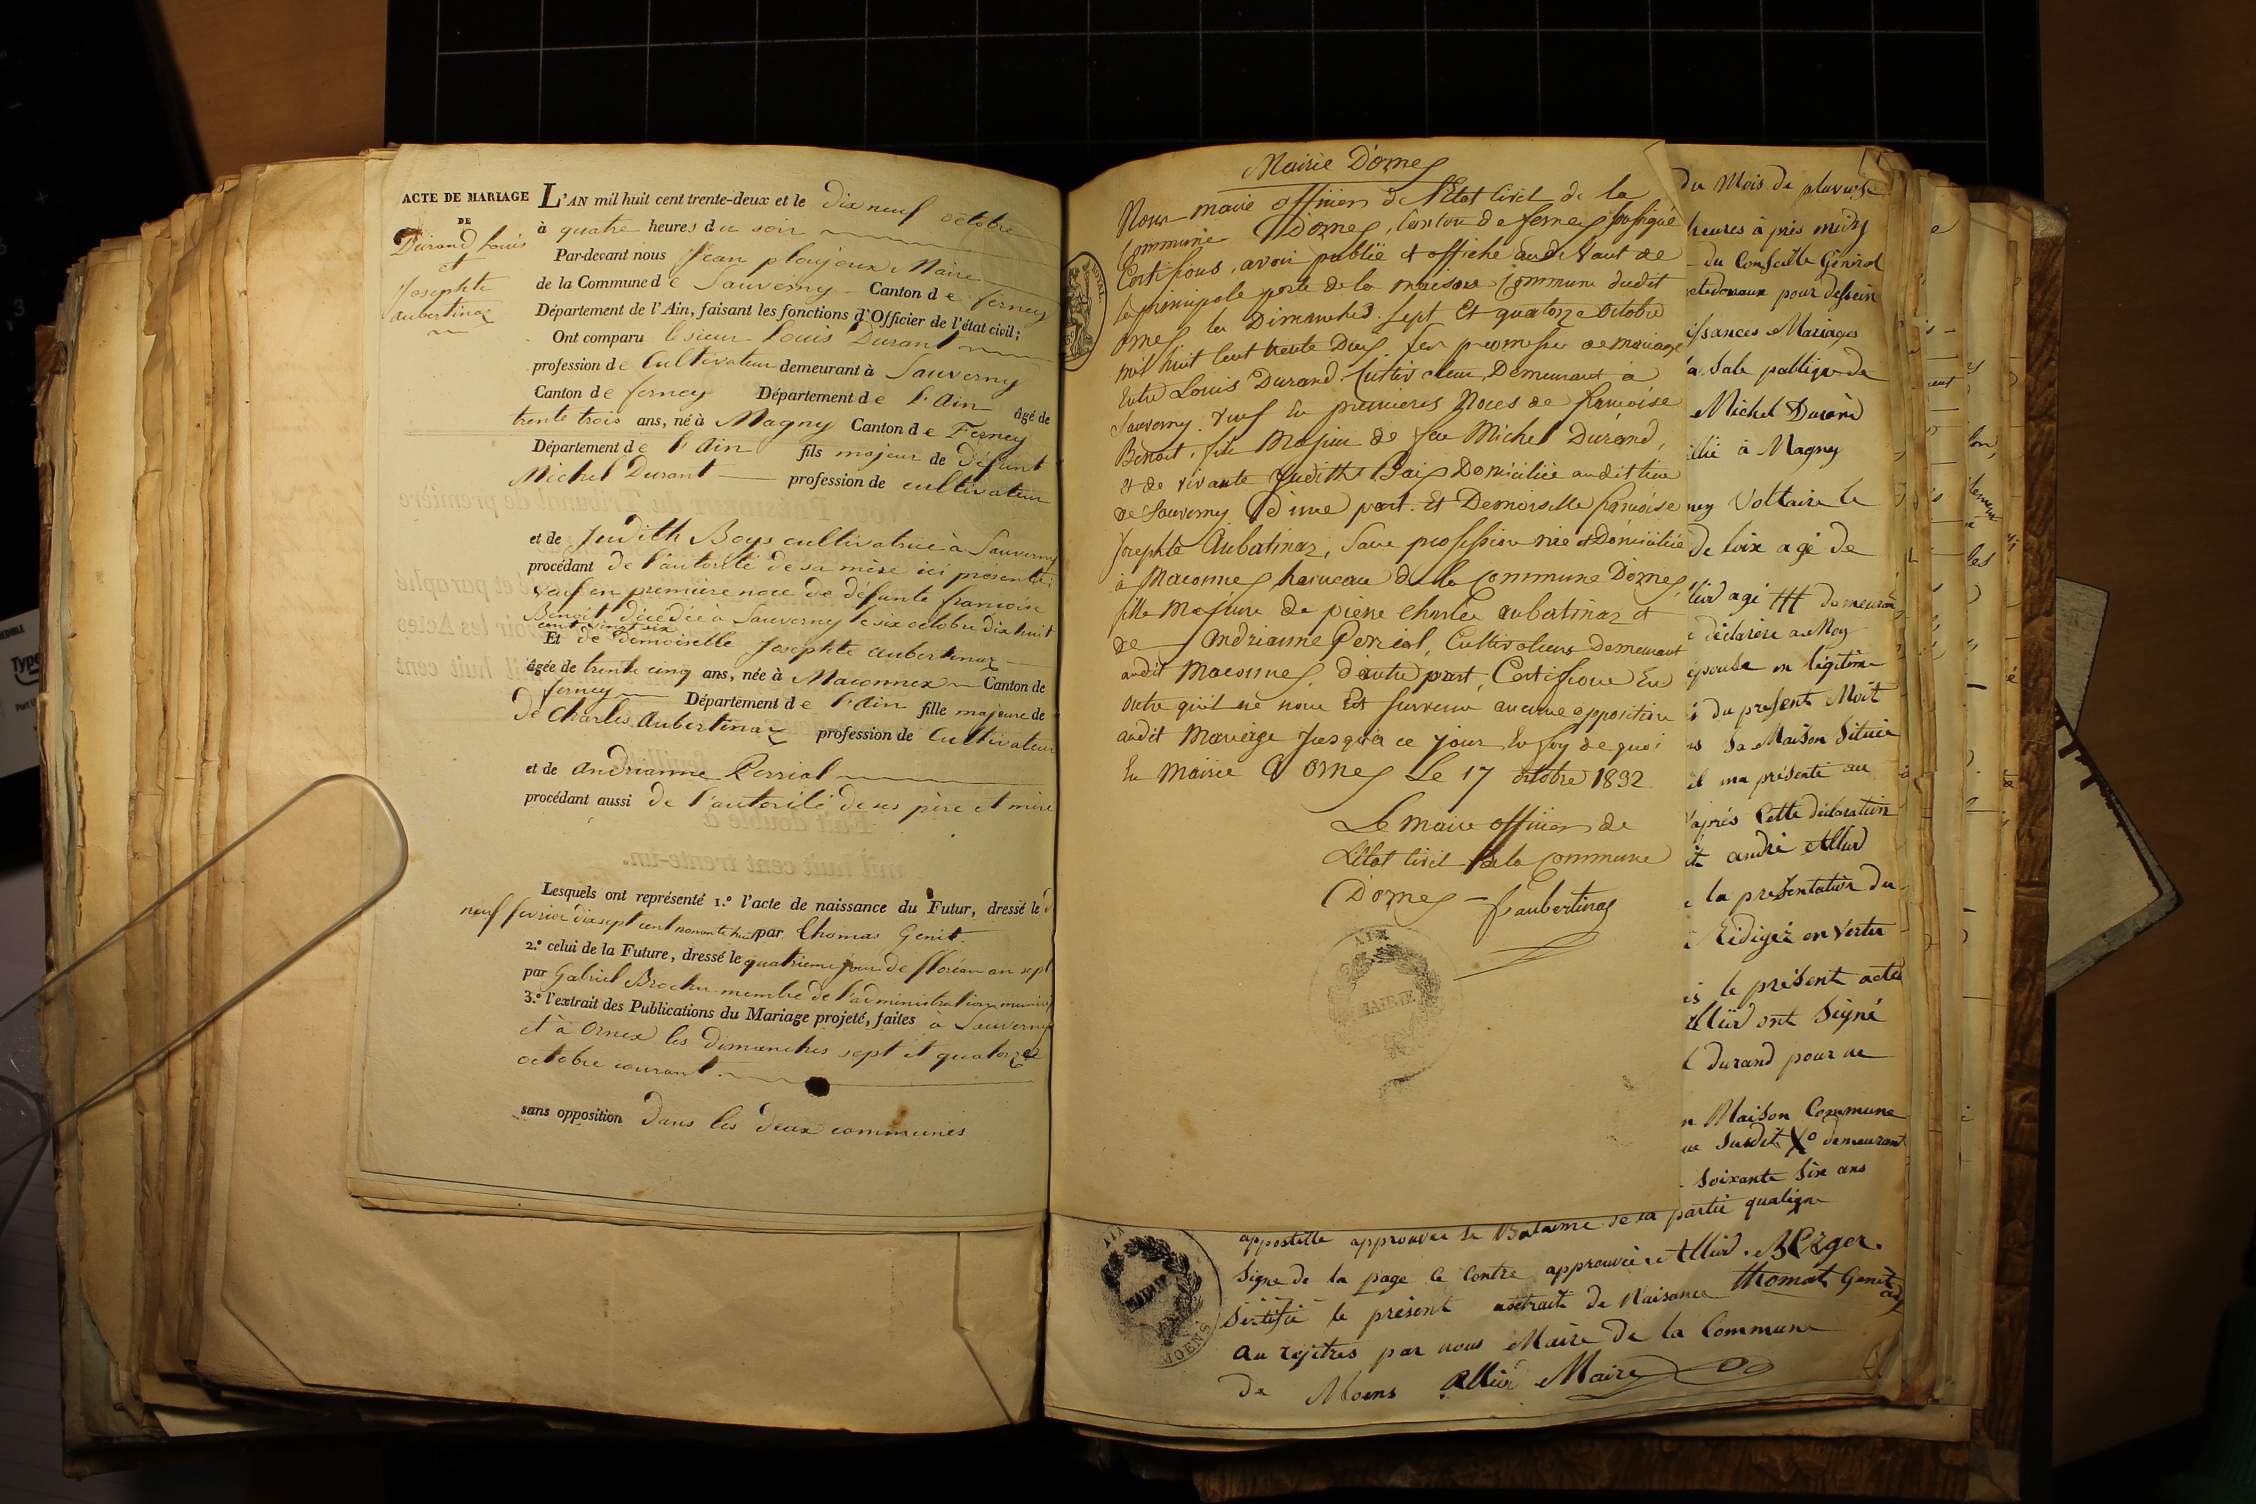 ACTE DE MARIAGE
DE
Durand Louis
et
Josephte
aubertinaz
L'AN mil huit cent trente-deux et le dix neuf octobre
à quatre heures du soir
Par-devant nous Jean plonjoux Maire
de la Commune de Sauverny Canton de ferney
Département de l'Ain, faisant les fonctions d'Officier de l'état civil;
Ont comparu le sieur Louis Durant
profession de Cultivateur demeurant à Sauverny
Canton de ferney Département de l'Ain âgé de
trente trois ans, né à Magny Canton de Ferney
Département de l'Ain fils majeur de défunt
Michel Durant profession de cultivateur
et de Judith Boys cultivatrice à Sauverny
procédant de l'autorité de sa mère ici présente;
veuf en première noce de défunte francoise
Benoit décédée à Sauverny le six octobre dix huit
cent vingt six
Et de Demoiselle Josephte aubertinaz
âgée de trente cinq ans, née à Maconnex Canton de
ferney Département de l'Ain fille majeure de
de Charles Aubertinaz profession de Cultivateur
et de Andrianne Perrial
procédant aussi de l'autorité de ses père et mère
Lesquels ont représenté 1.° l'acte de naissance du Futur, dressé le
neuf fevrier dix sept cent nonante huit par Thomas Genit.
2.° celui de la Future, dressé le quatrieme jour de floréan an sept
par Gabriel Brochu membre de l'administration munici
3.° l'extrait des Publications du Mariage projeté, faites à Sauverny
et à Ornex les dimanches sept et quatorze
octobre courant
sans opposition dans les deux communes
Mairie D'ornex
Nous maire officier de l'Etat Civil de la
Commune D'ornex, Canton de ferney soussigné
Certifions, avoir publié et affiché au devant de
la principale porte de la maison Commune dudit
ornex les Dimanches sept Et quatorze octobre
mil huit Cent trente Deux les promesses de mariage
Entre Louis Durand Cultivateur Demeurant à
Sauverny veuf En premieres Noces de francoise
Benoit, fils Majeur de feu Michel Durand,
et de vivante Judith Bois Domiciliée audit lieu
de Sauverny d'une part. Et Demoiselle francoise
Josephte Aubatinaz, Sans profession née et Domiciliée
à Maconnex hameau de la Commune D'ornex,
fille Majeure de pierre charles aubatinaz et
de Andrianne Perrial, Cultivateurs Demeurant
audit Maconnex, d'autre part, Certifions En
outre qu'il ne nous Est survenu aucune opposition
audit Mariage jusqu'à ce jour En foy de quoi
En Mairie D'ornex Le 17 octobre 1832
Le maire officier de
L'Etat Civil de la Commune
D'ornex — f aubertinaz
AIN
MAIRIE
ROYAL
du Mois de pluviose
heures à près midy
du Conseille Général
pour dessein
issances Mariages
Sale publique de
Michel Durand
lié à Magny
ney Voltaire le
de loix agé de
llid agé ttt demeurant
déclaré au Moy
epouse en légitime
du present Mois
Sa Maison Située
il ma présenté au
aprés Cette déclaration
andré Alliod
la presentation du
Rédigez en Vertu
le présent acte
ont Signé
Durand pour ne
n Maison Commune
ue Susdit X° demeurant
Soixante Six ans
appostille approuvée de la partie
Signe de la page Ce Contre approuvée Alliod. Berger.
Sertifié le présent extrait de Naisance Thomas Genit
au rejitres par nous Maire de la Commune
de Moens Allié Maire
MAIRIE
MOENS